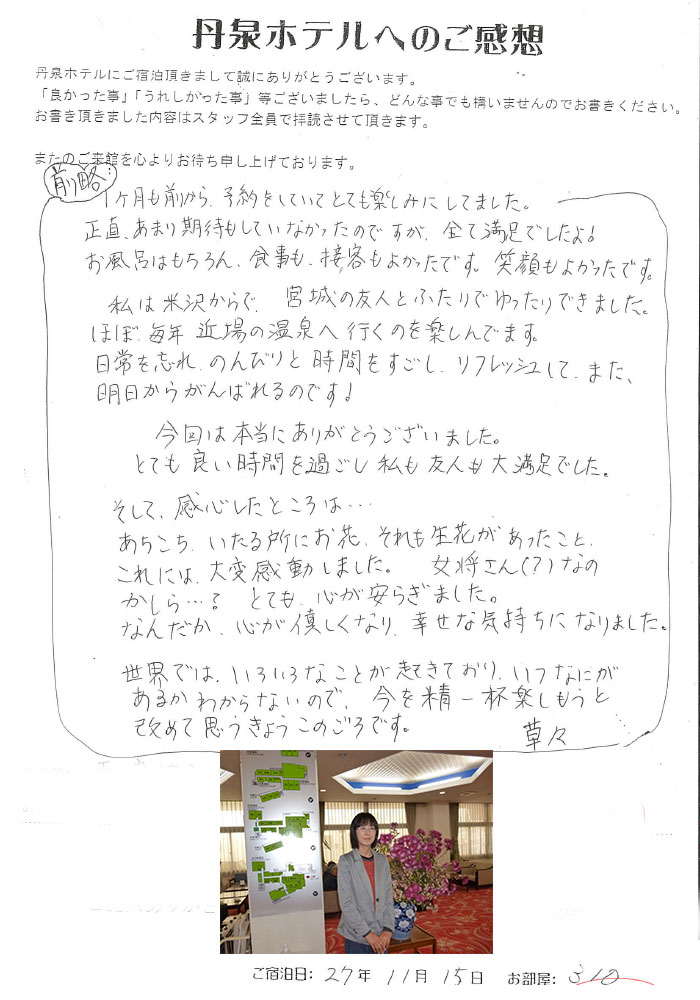 丹泉ホテルへのご感想
丹泉ホテルにご宿泊頂きまして誠にありがとうございます。
「良かった事」「うれしかった事」等ございましたら、どんな事でも構いませんのでお書きください。
お書き頂きました内容はスタッフ全員で拝読させて頂きます。
またのご来館を心よりお待ち申し上げております。
前略:
1ヶ月も前から、予約をしていてとても楽しみにしてました。
正直、あまり期待もしていなかったのですが、全て満足でしたよ!
お風呂はもちろん、食事も、接客もよかったです。笑顔もよかったです。
私は米沢からで、宮城の友人とふたりでゆったりできました。
ほぼ、毎年近場の温泉へ行くのを楽しんでます。
日常を忘れ、のんびりと時間をすごし、リフレッシュして、また、
明日からがんばれるのです!
今回は本当にありがとうございました。
とても良い時間を過ごし私も友人も大満足でした。
そして、感心したところは…
あちこち、いたる所にお花、それも生花があったこと、
これには、大変感動しました。 女将さん(?)なの
かしら…? とても、心が安らぎました。
なんだか、心が優しくなり、幸せな気持ちになりました。
世界では、いろいろなことが起きており、いつなにが
あるかわからないので、今を精一杯楽しもうと
改めて思うきょうこのごろです。
草々
ご宿泊日: 27年 11月 15日 お部屋: 310